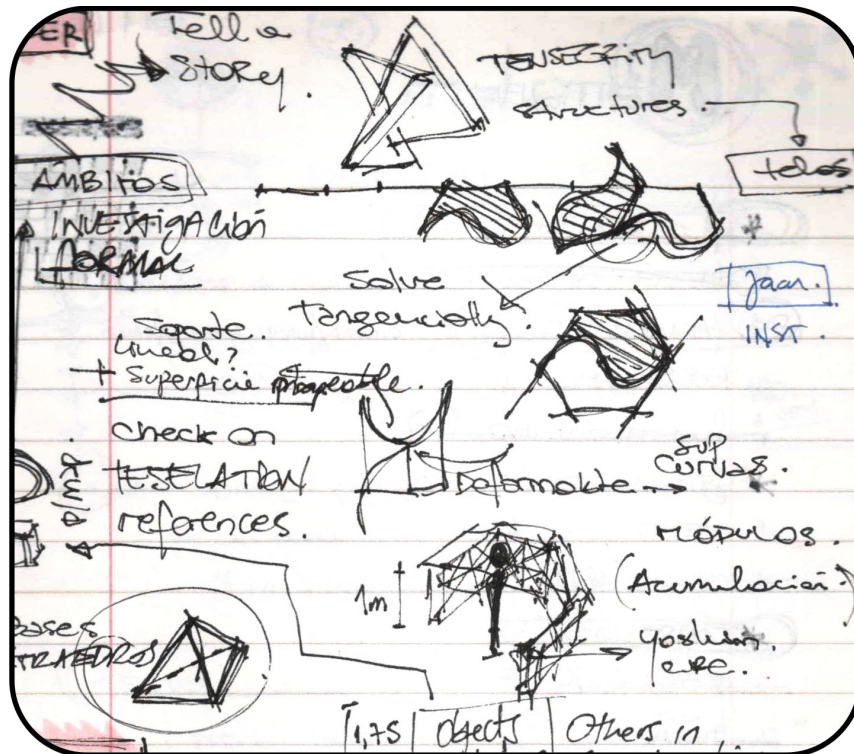 Tell a
STORY.
TENSEGRITY
structures.
telas
AMBITOS
INVESTIGACIÓN
FORMAL
Solve
Tangencially.
Jaar.
INST.
Soporte
lineal?
+ Superficie
check on
TESELATION
references.
Deformable →
SUP
CURVAS.
P/MP.
MÓDULOS.
(Acumulación.)
1m
Bases
1,75 | Objects | Others in